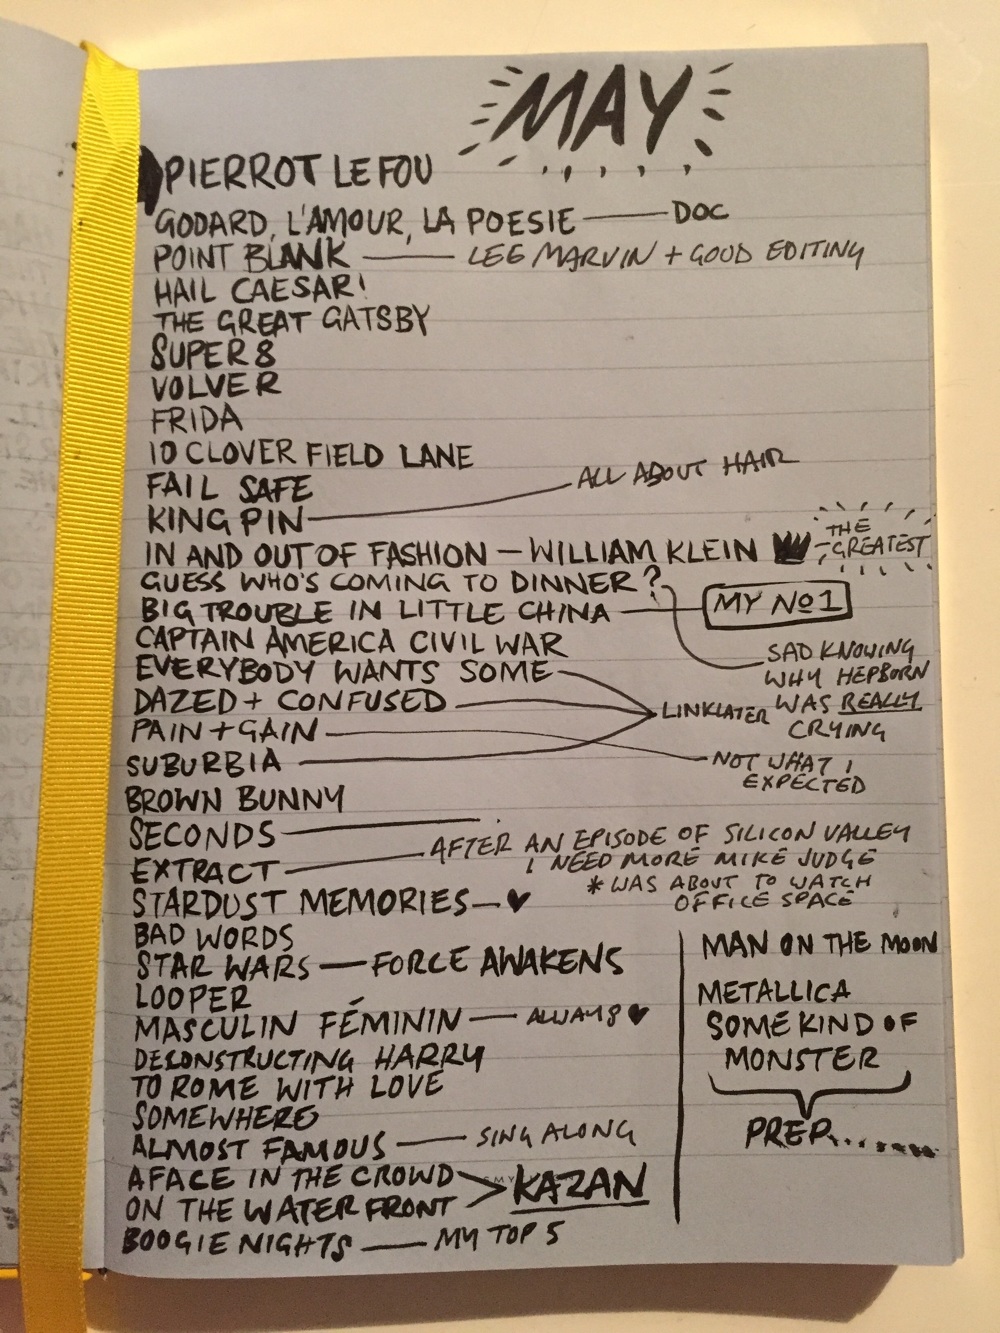 MAY
PIERROT LE FOU
GODARD, L'AMOUR, LA POESIE — DOC
POINT BLANK — LEE MARVIN + GOOD EDITING
HAIL CAESAR!
THE GREAT GATSBY
SUPER 8
VOLVER
FRIDA
10 CLOVER FIELD LANE
FAIL SAFE
KING PIN — ALL ABOUT HAIR
IN AND OUT OF FASHION — WILLIAM KLEIN THE GREATEST
GUESS WHO'S COMING TO DINNER?
SAD KNOWING
WHY HEPBORN
WAS REALLY
CRYING
BIG TROUBLE IN LITTLE CHINA — MY No 1
CAPTAIN AMERICA CIVIL WAR
EVERYBODY WANTS SOME
DAZED + CONFUSED — LINKLATER
PAIN + GAIN — NOT WHAT I
EXPECTED
SUBURBIA
BROWN BUNNY
SECONDS —
EXTRACT — AFTER AN EPISODE OF SILICON VALLEY
I NEED MORE MIKE JUDGE
* WAS ABOUT TO WATCH
OFFICE SPACE
STARDUST MEMORIES — ♥
BAD WORDS
STAR WARS — FORCE AWAKENS
LOOPER
MASCULIN FÉMININ — ALWAYS ♥
DECONSTRUCTING HARRY
TO ROME WITH LOVE
SOMEWHERE
ALMOST FAMOUS — SING ALONG
A FACE IN THE CROWD
ON THE WATER FRONT > KAZAN
BOOGIE NIGHTS — MY TOP 5
MAN ON THE MOON
METALLICA
SOME KIND OF
MONSTER
PREP........